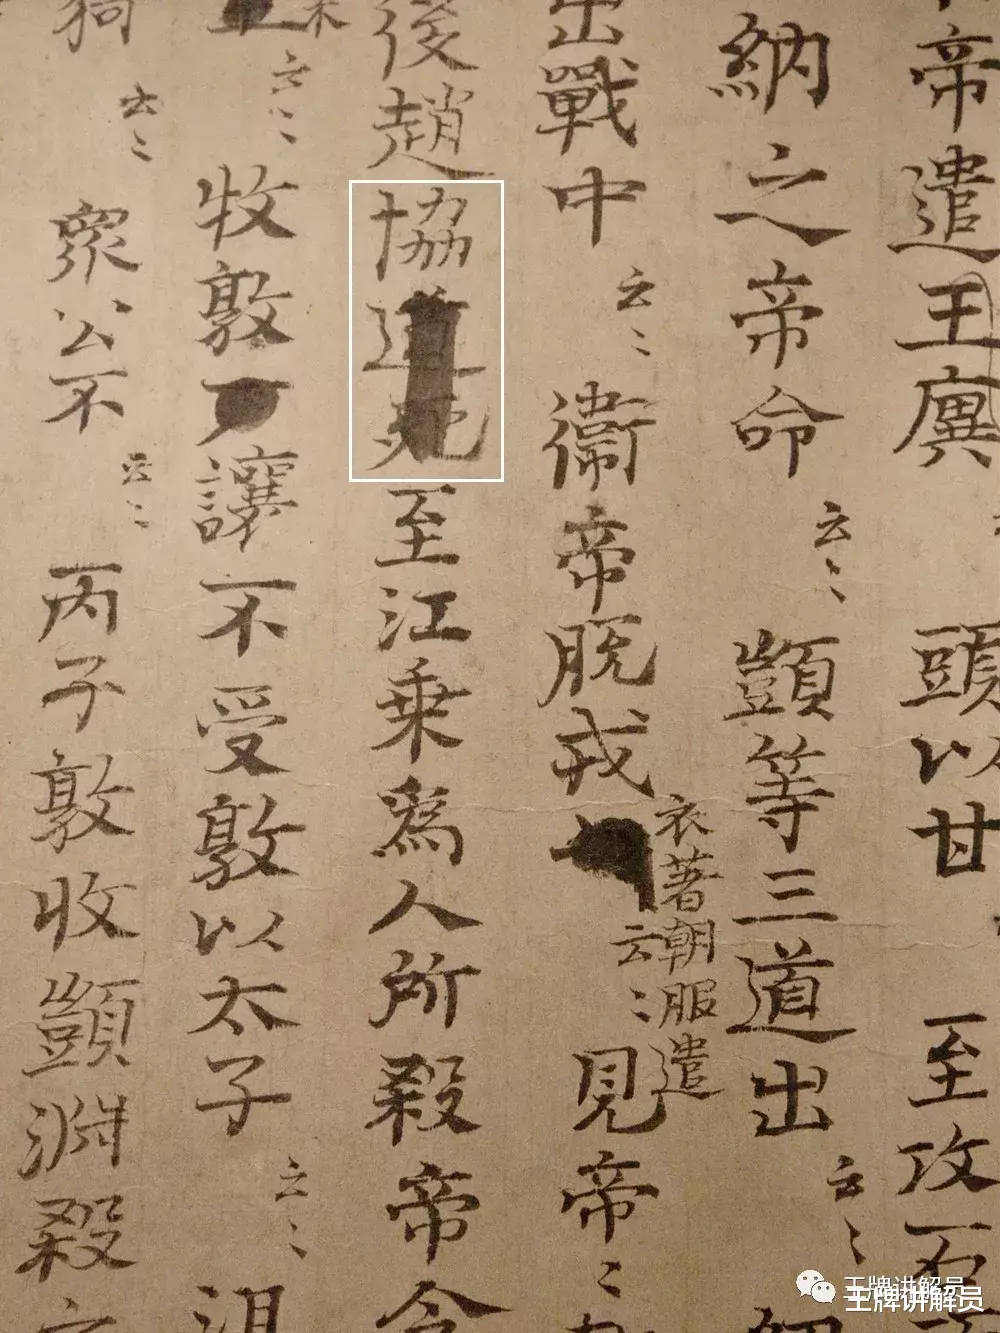 帝遣王廙 頭以甘 至攻石
納之帝命 云〻 顗等三道出 云〻
出戰中 云〻 衛帝脱戎 衣著朝服遣 云〻 見帝〻
後趙協道死至江乘爲人所殺帝令
云〻 牧敦 讓不受敦以太子 云〻 沮
云〻 衆公不 云〻 丙子敦收顗淵殺
王牌讲解员
王牌讲解员